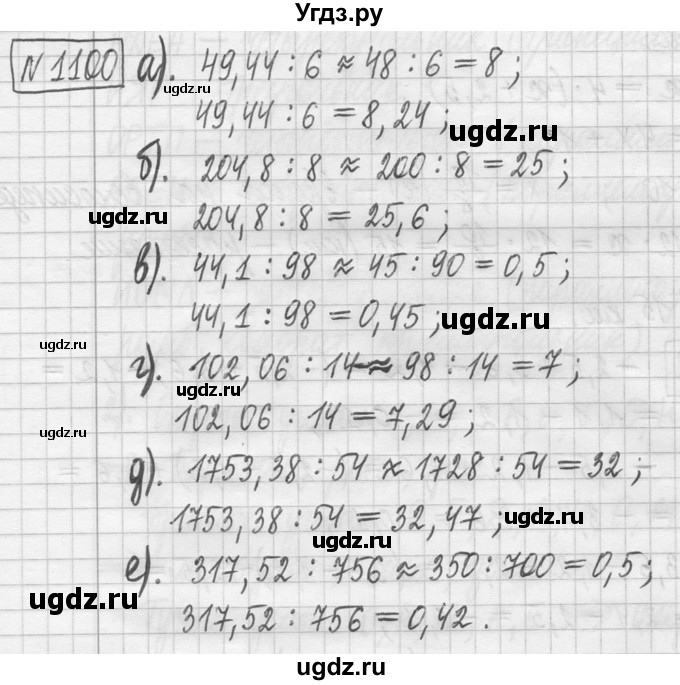 Угдз.ру
№1100 а). 49,44 : 6 ≈ 48 : 6 = 8 ;
ugdz.ru
49,44 : 6 = 8,24 ;
ugdz.ru
б). 204,8 : 8 ≈ 200 : 8 = 25 ;
ugdz.ru
204,8 : 8 = 25,6 ;
в). 44,1 : 98 ≈ 45 : 90 = 0,5 ;
44,1 : 98 = 0,45 ;
ugdz.ru
ugdz.ru
г). 102,06 : 14 ≈ 98 : 14 = 7 ;
ugdz.ru
102,06 : 14 = 7,29 ;
ugdz.ru
д). 1753,38 : 54 ≈ 1728 : 54 = 32 ;
1753,38 : 54 = 32,47 ;
ugdz.ru
ugdz.ru
е). 317,52 : 756 ≈ 350 : 700 = 0,5 ;
ugdz.ru
317,52 : 756 = 0,42 .
ugdz.ru
ugdz.ru